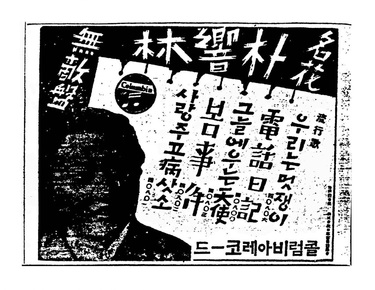 名花
朴響林
Columbia
流行歌
우리는멋쟁이
電話日記
그늘에우는天使
봄事件
사랑주고病삿소
콜럼비아레코ー드